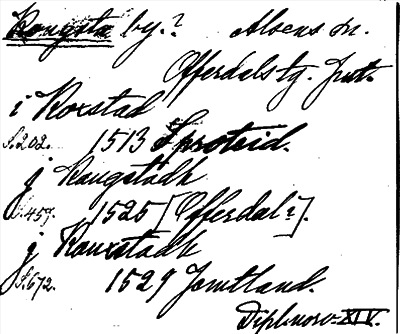 Rougsta by.? Alsens sn.
Offerdals tg. Jmtl.
i Roxstad
S.202. 1513 Sproteid.
j Raugstadh
S.457. 1525 [Offerdal?].
j Rauxstadh
S.672. 1529 Jomtland.
Dipl. norv. XIV.